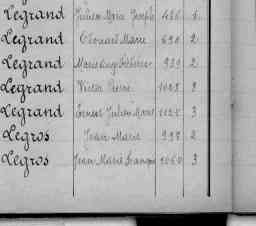 Legrand Julien Marie Joseph 486 1
Legrand Edouard Marie 690 2
Legrand Marie Ange 2
Legrand Victor Pierre 1008 2
Legrand Ernest Julien Marie 1125 3
Legros Jean Marie 998 2
Legros Jean Marie François 1060 3